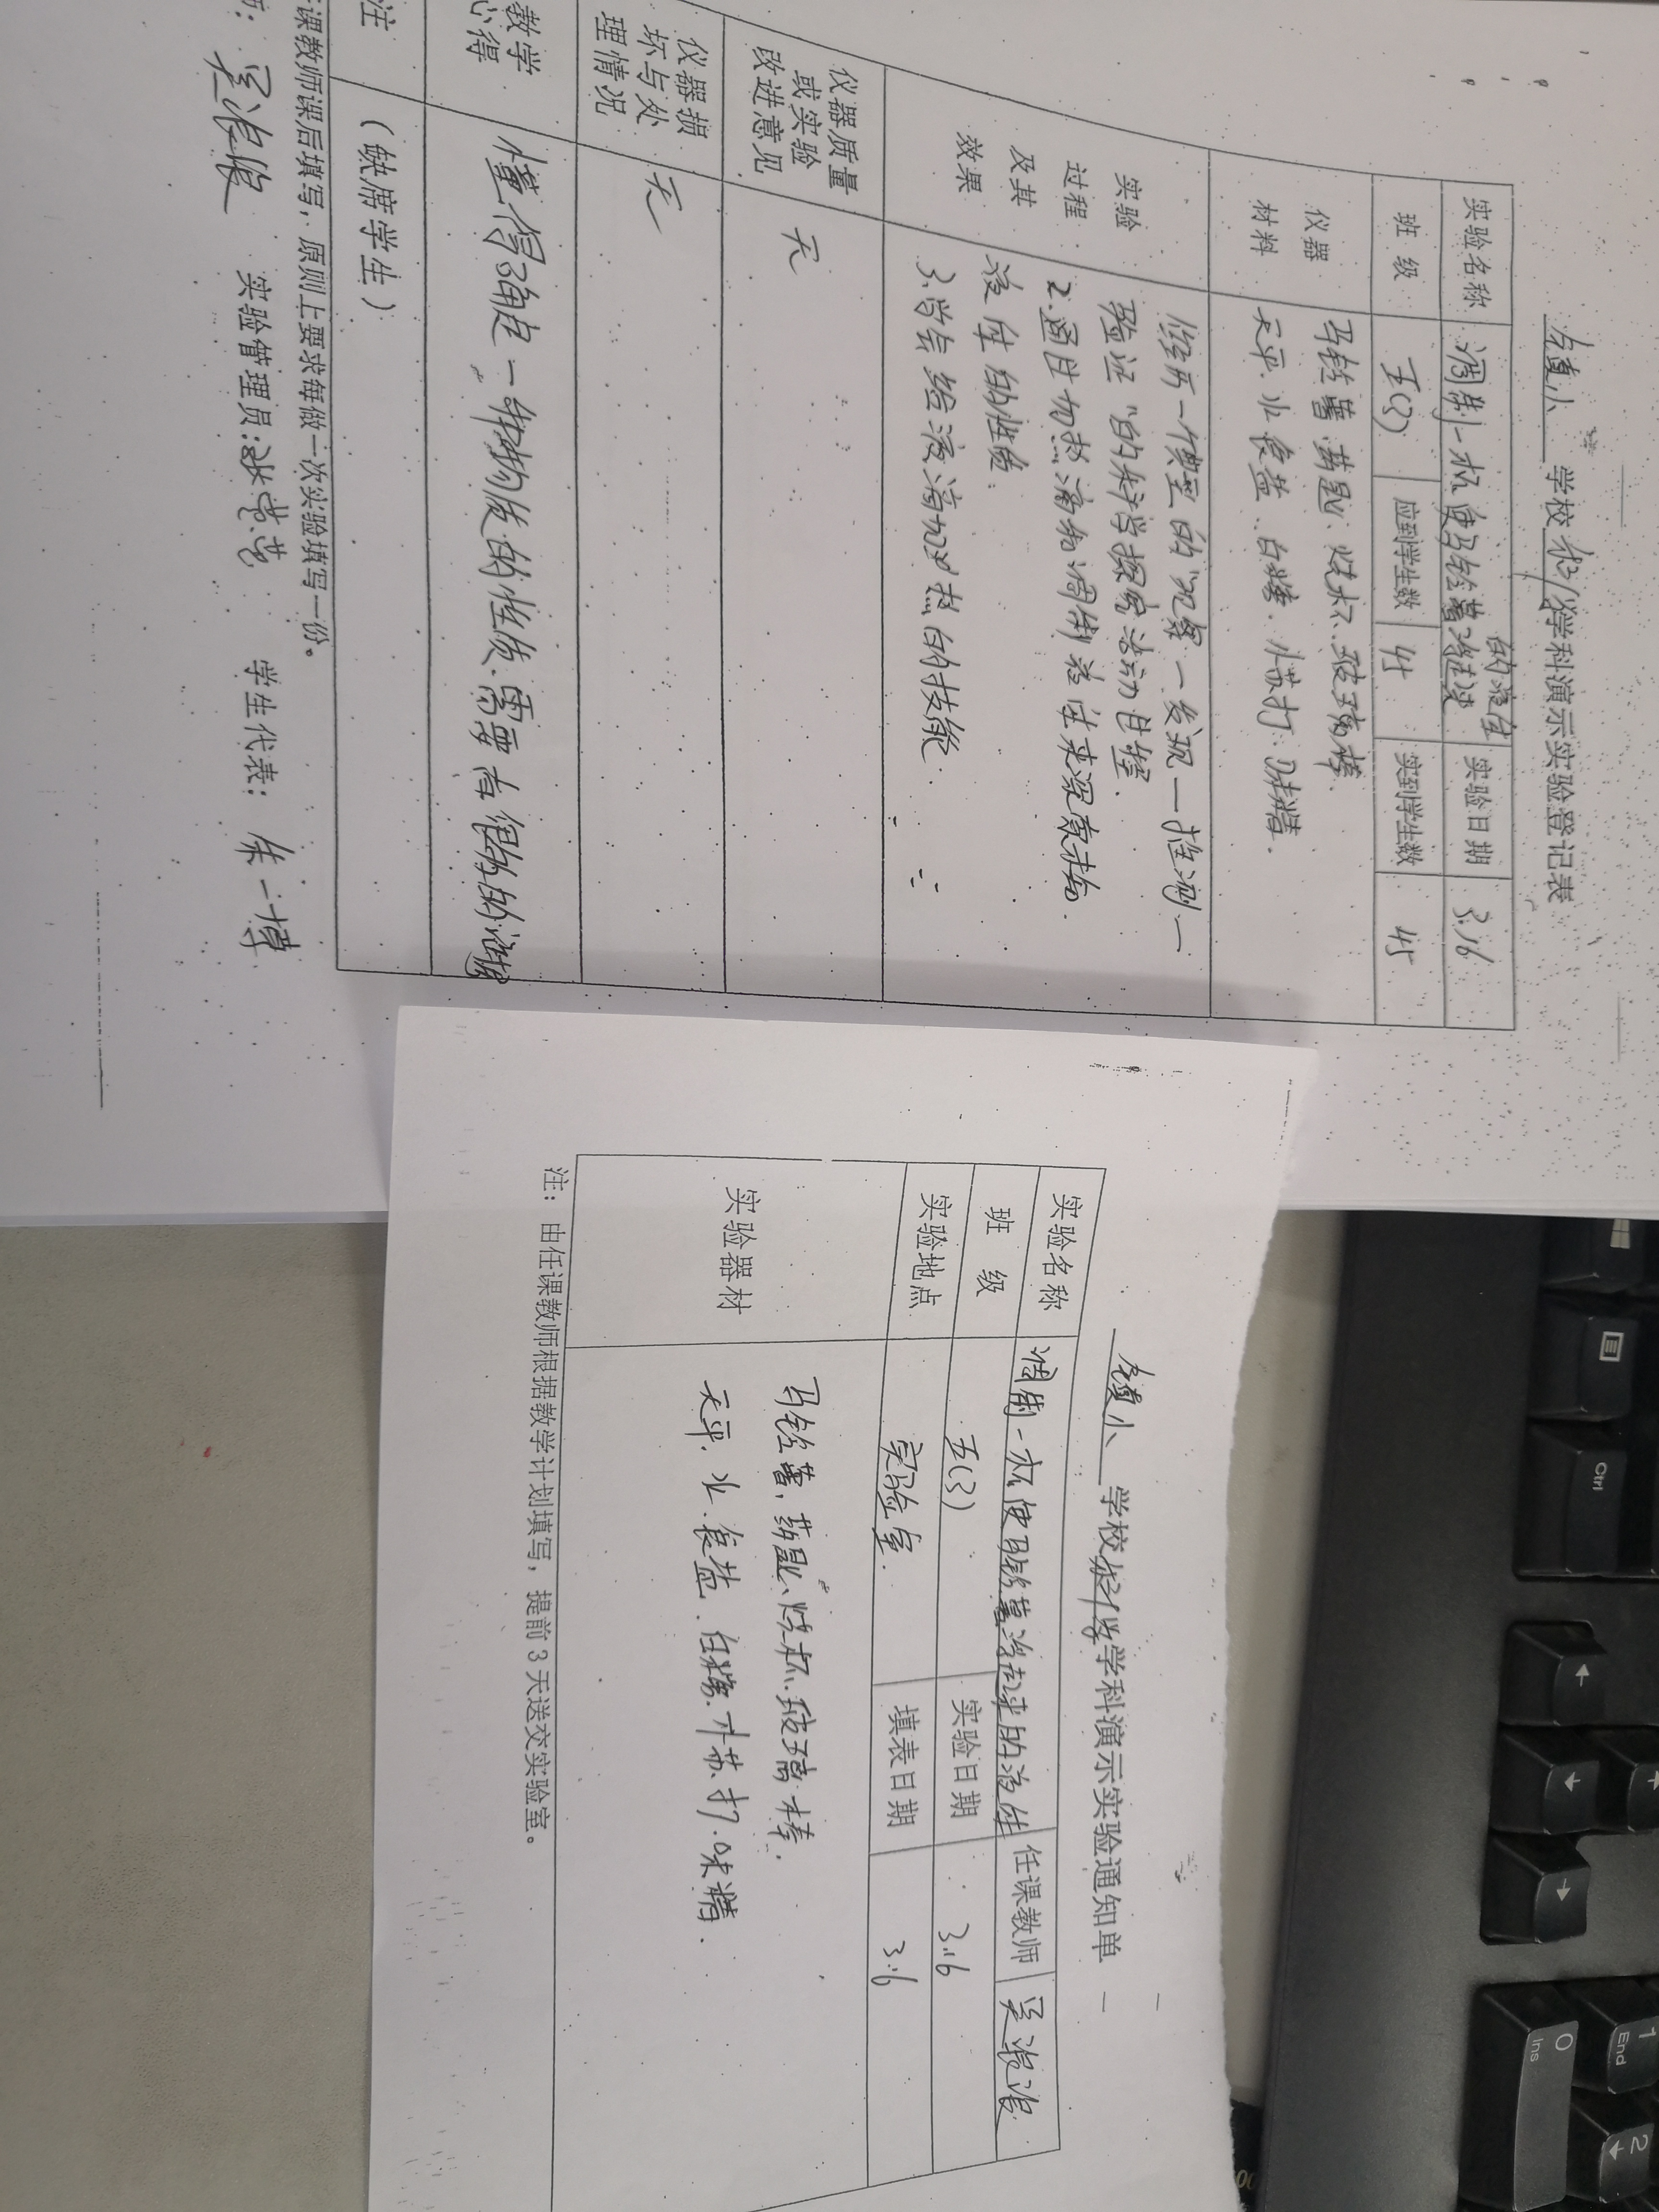 学校科学学科演示实验登记表
实验名称 调制一杯使马铃薯浮起来的液体 实验日期 3.16
班级 五(3) 应到学生数 45 实到学生数 45
仪器材料
马铃薯、葫匙、烧杯、玻璃棒、
天平、水、食盐、白糖、小苏打、味精.
实验过程及其效果
经历一个典型的"观察一发现一推测一
验证"的科学探究活动过程.
2.通过加热液和调制液体来探索未知
液体的性质.
3.学会给液滴加热的技能.
仪器质量或实验改进意见 无
仪器损坏与处理情况 无
教学心得 懂得确定一种物质的性质.需要有很多的证据
注 (缺席学生)
课教师课后填写,原则上要求每做一次实验填写一份。
吴浪浪 实验管理员: 学生代表: 朱一博
学校科学学科演示实验通知单
实验名称 调制一杯使马铃薯浮起来的液体 任课教师 吴浪浪
班级 五(3) 实验日期 3.16
实验地点 实验室. 填表日期 3.6
实验器材
马铃薯、葫匙、烧杯、玻璃棒.
天平、水、食盐、白糖、小苏打、味精.
注:由任课教师根据教学计划填写,提前3天送交实验室。
Ctrl
1
End
0
Ins
2